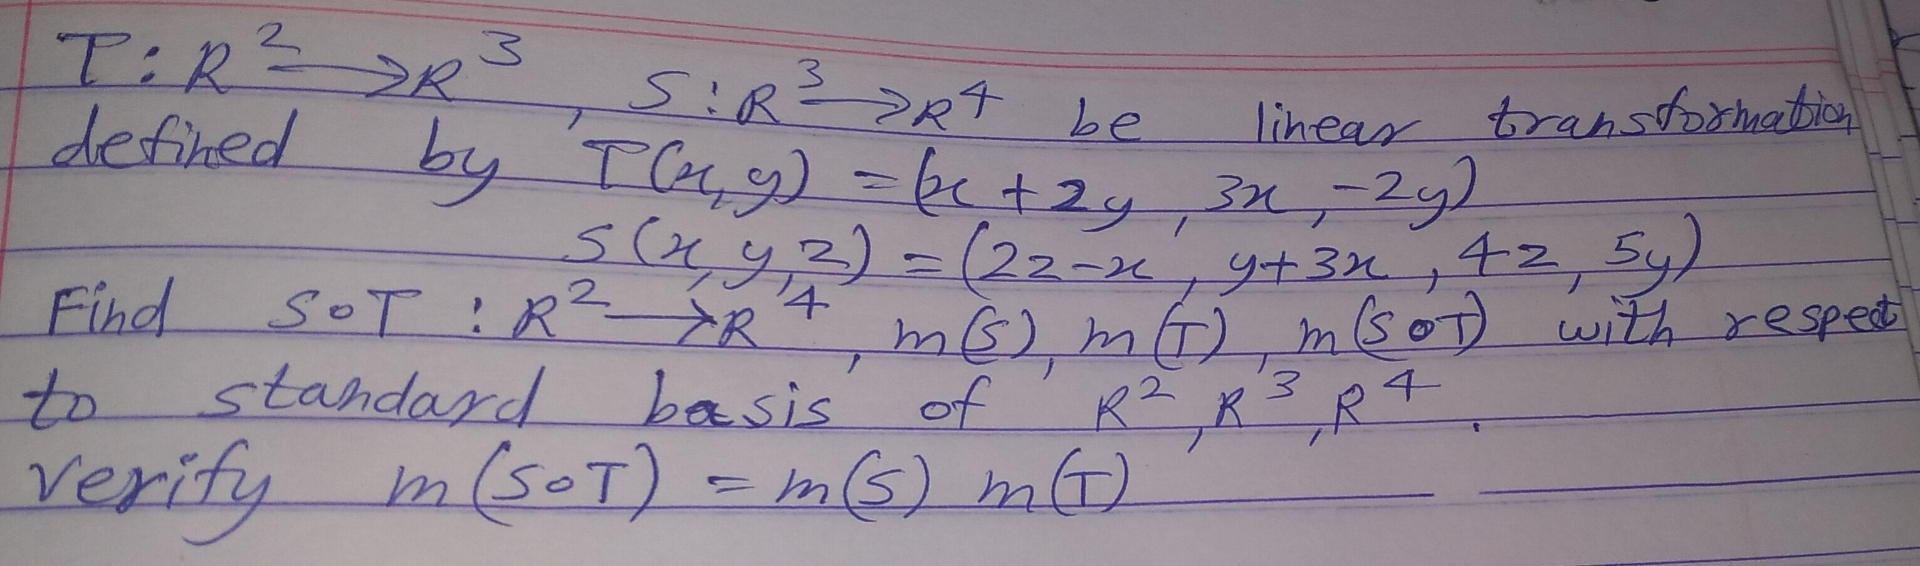 T: R² → R³, S: R³ → R⁴ be linear transformation
defined by T(x, y) = (x + 2y, 3x, -2y)
S(x, y, z) = (2z - x, y + 3x, 4z, 5y)
Find S∘T : R² → R⁴, m(S), m(T), m(S∘T) with respect
to standard basis of R², R³, R⁴.
verify m(S∘T) = m(S) m(T)